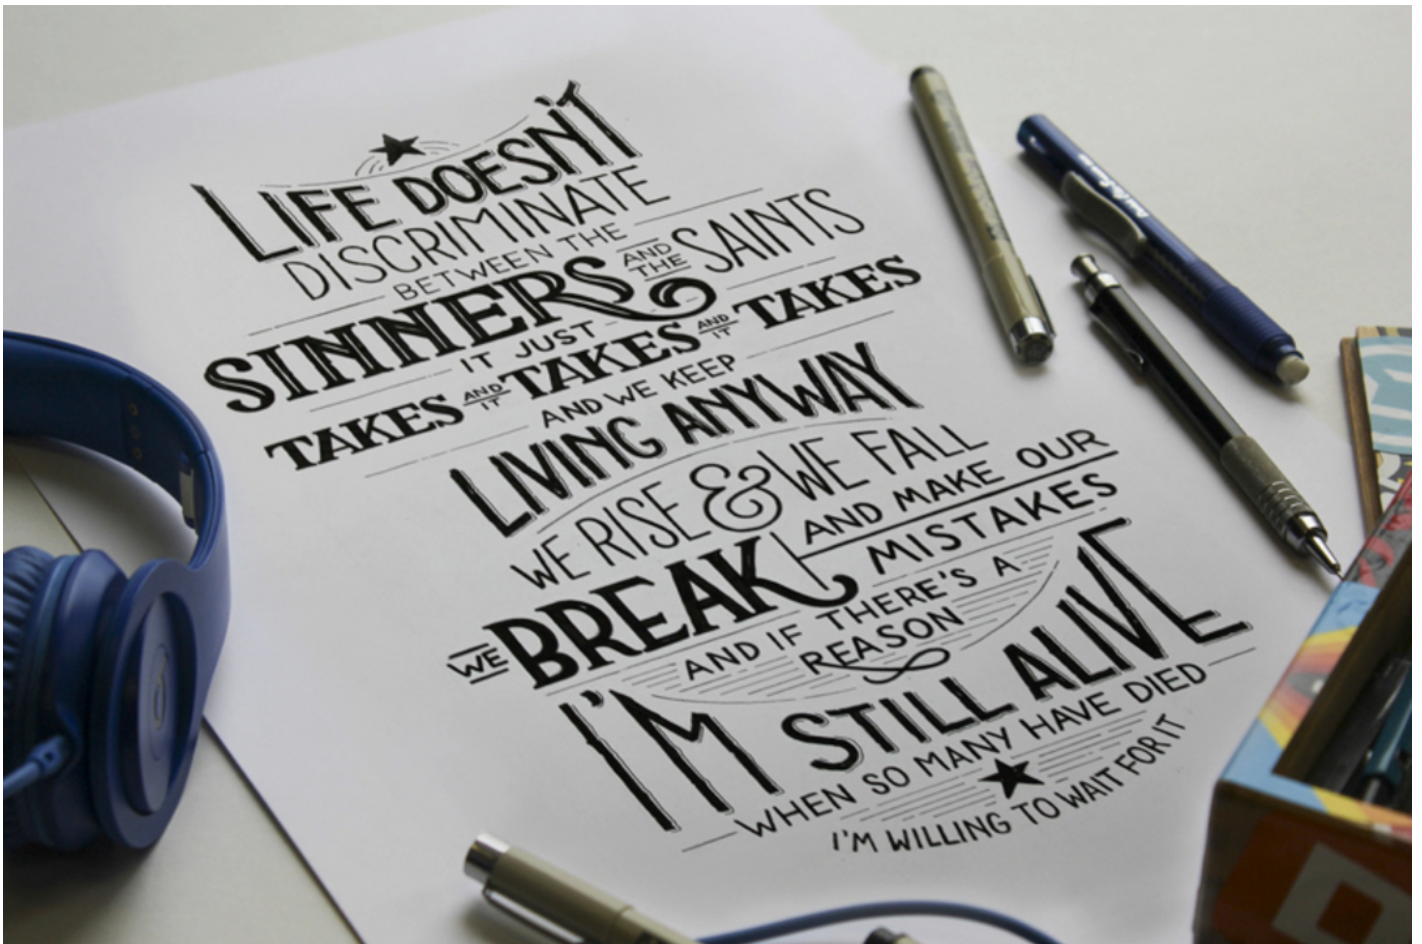 LIFE DOESN'T
DISCRIMINATE
BETWEEN THE
SINNERS AND THE SAINTS
IT JUST
TAKES AND IT TAKES AND IT TAKES
AND WE KEEP
LIVING ANYWAY
WE RISE & WE FALL
WE BREAK
AND MAKE OUR
MISTAKES
AND IF THERE'S A
REASON
I'M STILL ALIVE
WHEN SO MANY HAVE DIED
I'M WILLING TO WAIT FOR IT